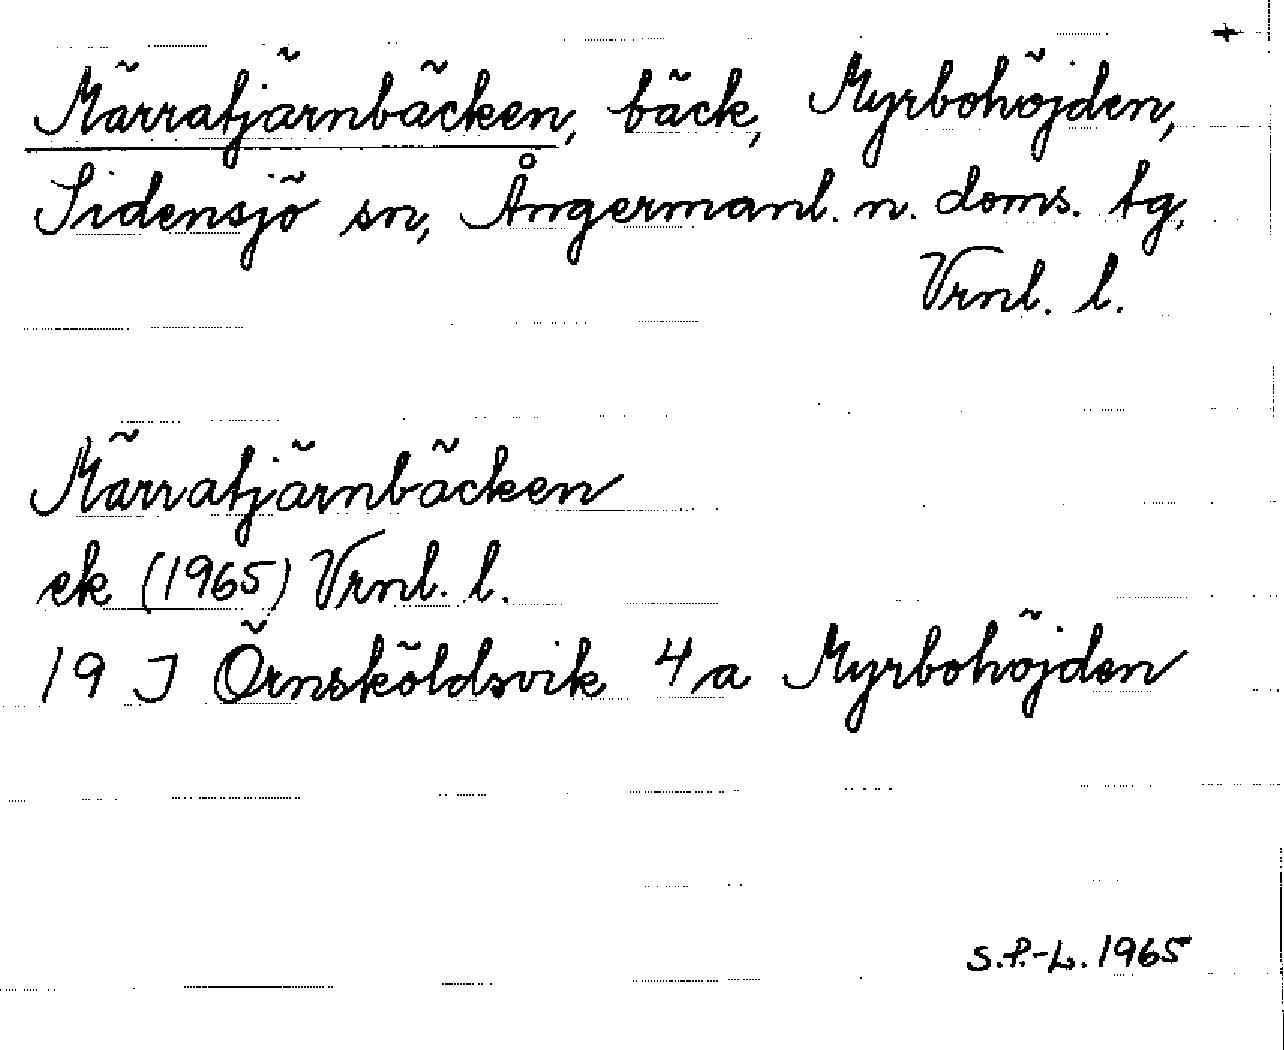 Märratjärnbäcken, bäck, Myrbohöjden,
Sidensjö sn, Ångermanl. n. doms. tg,
Vrnl. l.
Märratjärnbäcken
ek (1965) Vrnl. l.
19 J Örnsköldsvik 4 a Myrbohöjden
S.P.-L. 1965